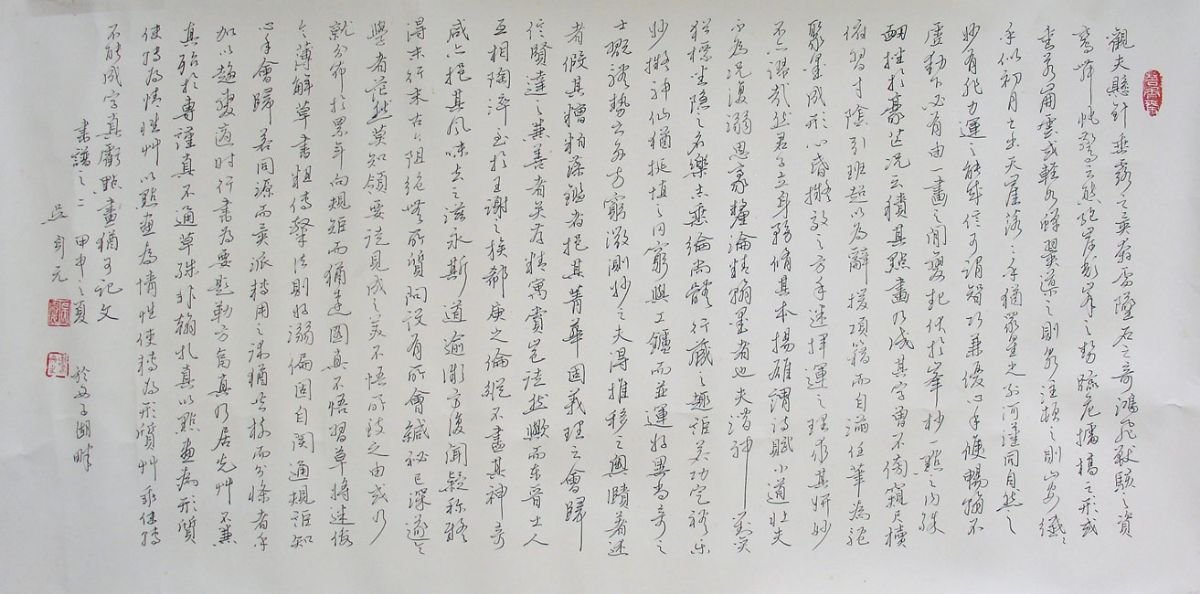 觀夫懸針垂露之異奔雷墜石之奇鴻飛獸駭之資
鸞舞蛇驚之態絶岸頹峯之勢臨危據槁之形或
重若崩雲或輕如蟬翼導之則泉注頓之則山安纖纖
乎似初月之出天崖落落乎猶衆星之列河漢同自然之
妙有非力運之能成信可謂智巧兼優心手雙暢翰不
虛動下必有由一畫之間變起伏於峯杪一點之内殊
衄挫於豪芒況云積其點畫乃成其字曾不傍窺尺牘
俯習寸陰引班超以為辭援項籍而自滿任筆為體
聚墨成形心昏擬效之方手迷揮運之理求其妍妙
不亦謬哉然君子立身務脩其本揚雄謂詩賦小道壯夫
不為況復溺思豪釐淪精翰墨者也夫潛神對奕
猶標坐隱之名樂志垂綸尚體行藏之趣詎若功定禮樂
妙擬神仙猶挻埴之罔窮與工鑪而並運好異尚奇之
士翫體勢之多方窮微測妙之夫得推移之奥賾著述
者假其糟粕藻鑑者挹其菁華固義理之會歸
信賢達之兼善者矣存精寓賞豈徒然歟而東晉士人
互相陶淬至於王謝之族郗庾之倫縱不盡其神奇
咸亦挹其風味去之滋永斯道逾微方復聞疑称疑
得末行末古今阻絶無所質問設有所會緘秘已深遂令
學者茫然莫知領要徒見成功之美不悟所致之由或乃
就分布於累年向規矩而猶遠圖真不悟習草將迷假
令薄解草書粗傳隸法則好溺偏固自閡通規詎知
心手會歸若同源而異派轉用之術猶共樹而分條者乎
加以趨變適時行書為要題勒方畐真乃居先艸不兼
真殆於專謹真不通草殊非翰札真以點畫為形質
使轉為情性艸以點畫為情性使轉為形質艸乖使轉
不能成字真虧點畫猶可記文
書譜之二 甲申之夏 於女子湖畔